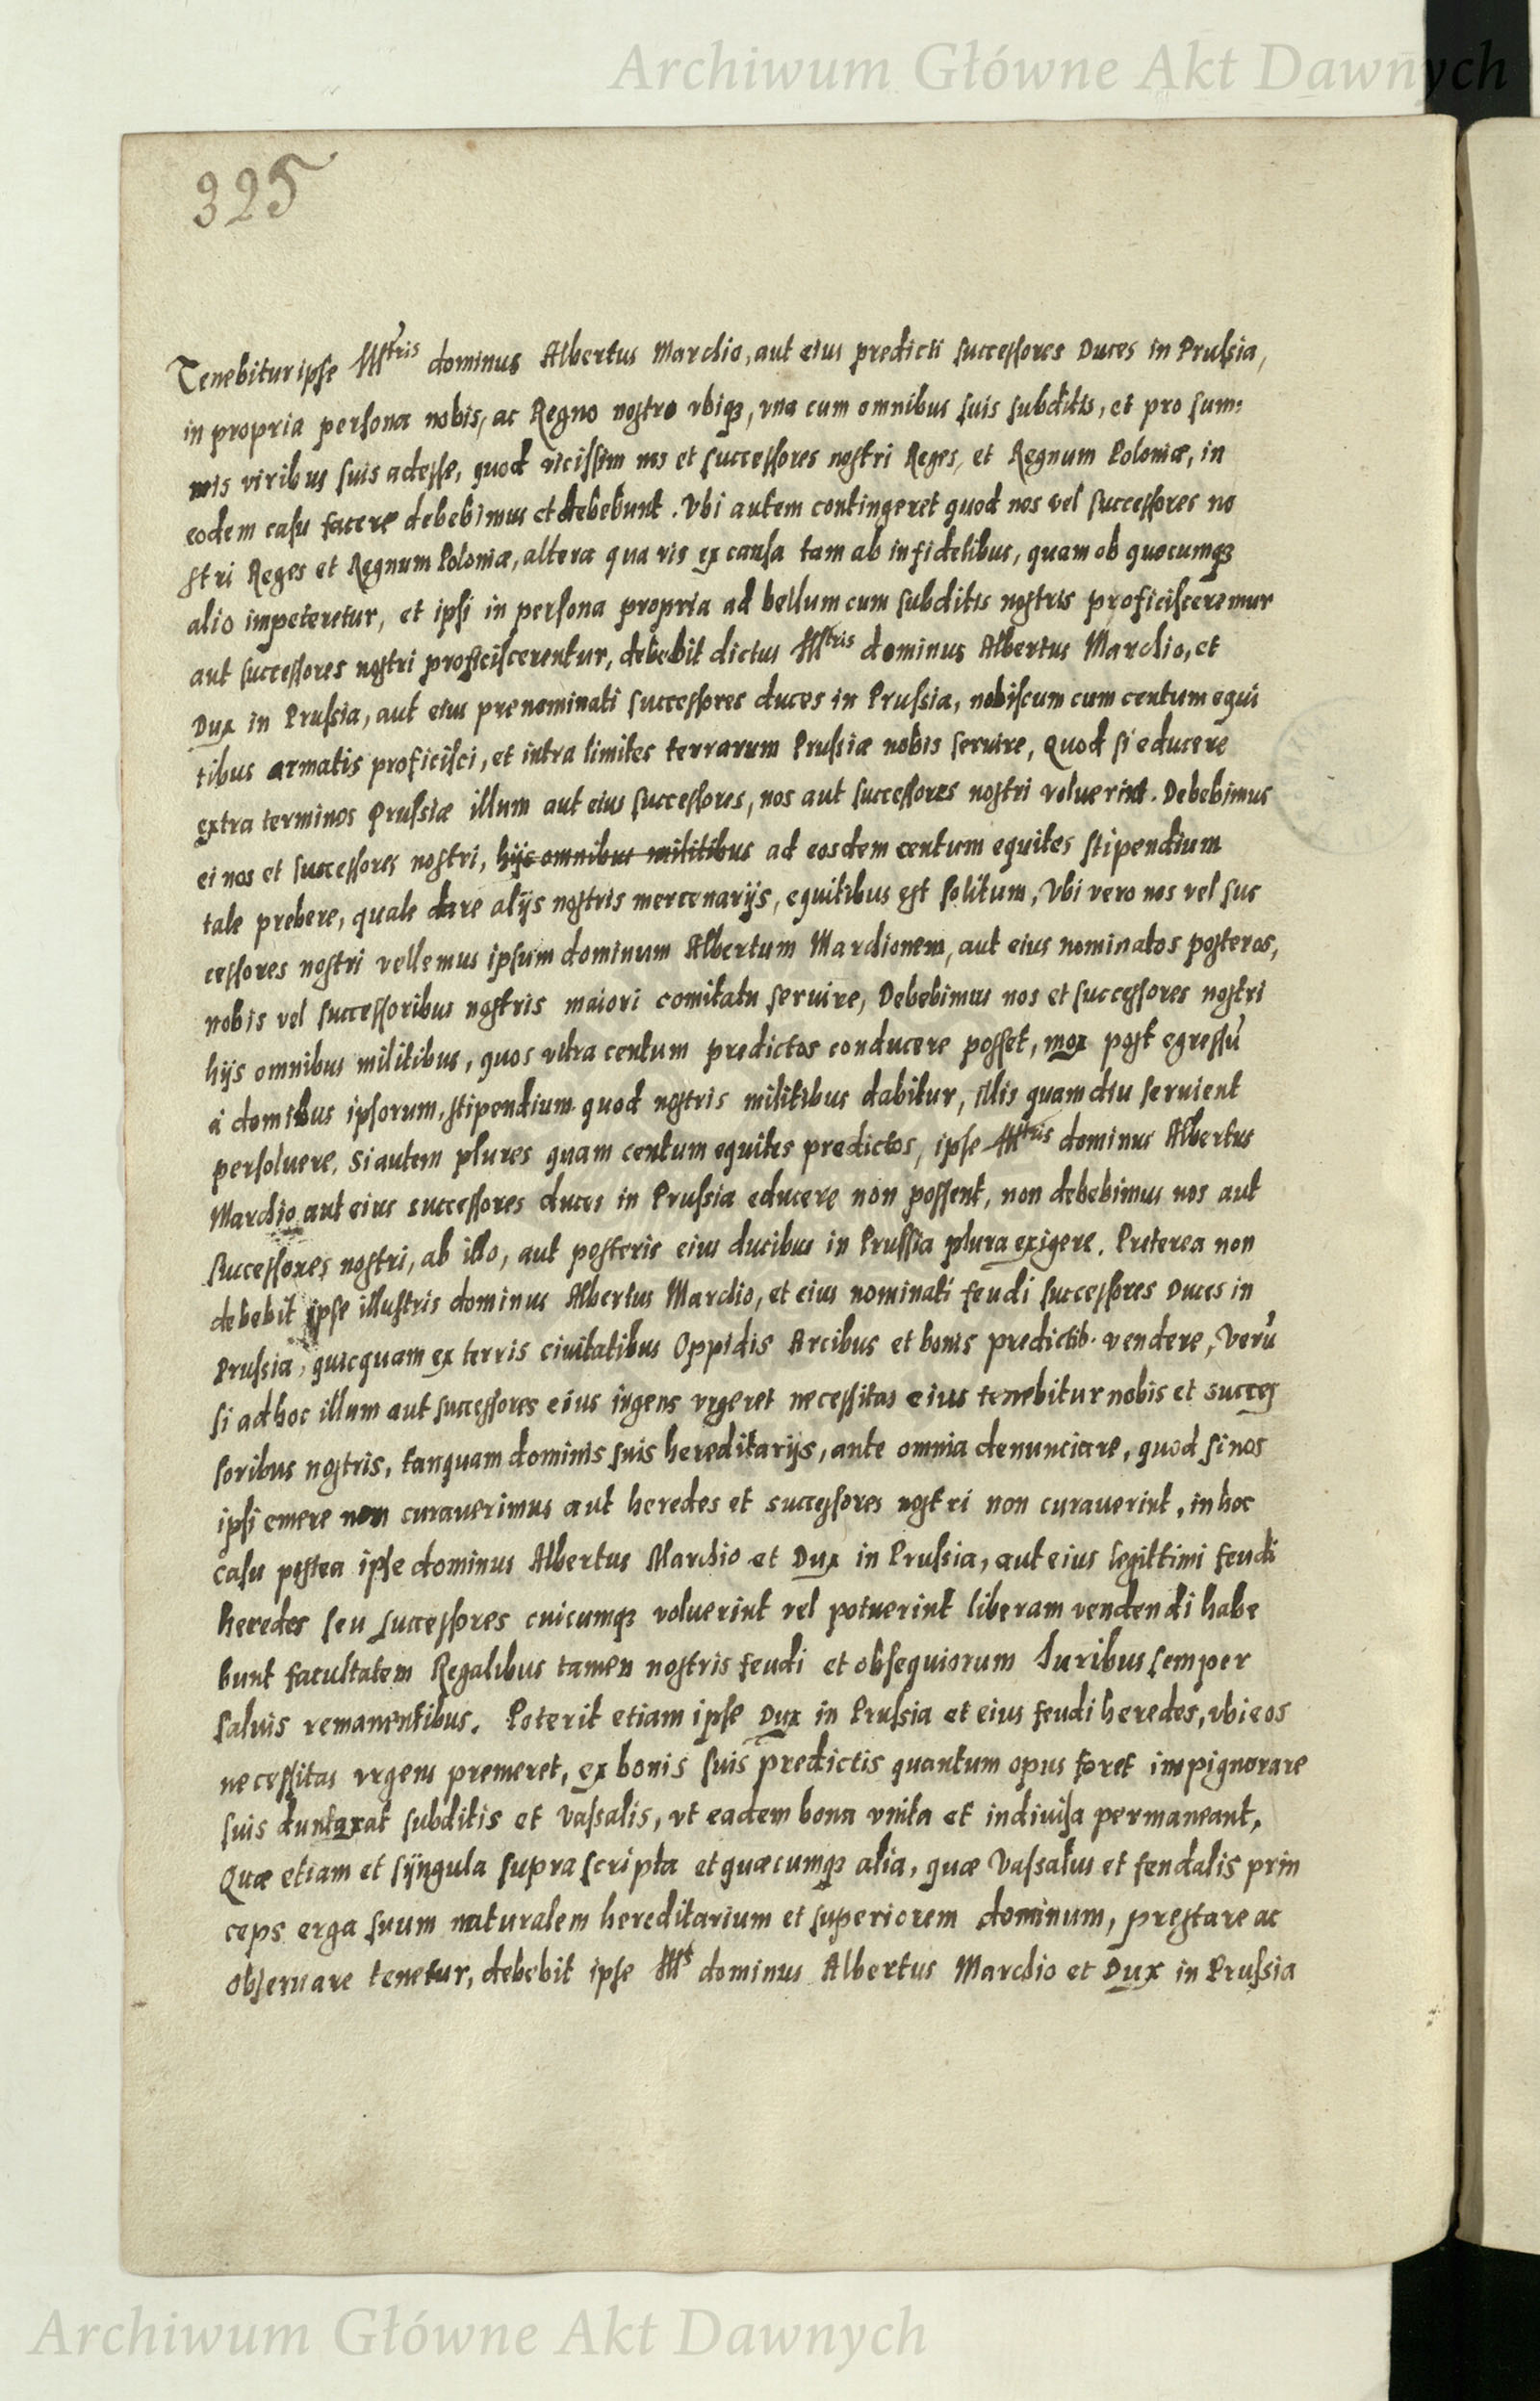 Archiwum Główne Akt Dawnych
325
Tenebitur ipse Illtris dominus Albertus Marchio, aut eius predicti successores Duces in Prussia,
in propria persona nobis, ac Regno nostro vbiq3, vna cum omnibus suis subditis, et pro sum:
mis viribus suis adesse, quod vicissim nos et successores nostri Reges, et Regnum Poloniæ, in
eodem casu facere debebimus et debebunt. Vbi autem contingeret quod nos vel successores no
stri Reges et Regnum Poloniæ, altera qua vis ex causa tam ab infidelibus, quam ob quocumq3
alio impeteretur, et ipsi in persona propria ad bellum cum subditis nostris proficisceremur
aut successores nostri proficiscerentur, debebit dictus Illtris dominus Albertus Marchio, et
Dux in Prussia, aut eius prenominati successores duces in Prussia, nobiscum cum centum equi
tibus armatis proficisci, et intra limites terrarum Prussiæ nobis seruire, Quod si educere
extra terminos Prussiæ illum aut eius successores, nos aut successores nostri voluerint. Debebimus
ei nos et successores nostri, hijs omnibus militibus ad eosdem centum equites stipendium
tale prebere, quale dare alijs nostris mercenarijs, equitibus est solitum, Vbi vero nos vel suc
cessores nostri vellemus ipsum dominum Albertum Marchionem, aut eius nominatos posteros,
nobis vel successoribus nostris maiori comitatu seruire, Debebimus nos et successores nostri
hijs omnibus militibus, quos vltra centum predictos conducere posset, mox post egressũ
à domibus ipsorum, stipendium quod nostris militibus dabitur, illis quamdiu seruient
persoluere. Si autem plures quam centum equites predictos, ipse Illtris dominus Albertus
Marchio aut eius successores duces in Prussia educere non possent, non debebimus nos aut
Successores nostri, ab illo, aut posteris eius ducibus in Prussia plura exigere. Preterea non
debebit ipse illustris dominus Albertus Marchio, et eius nominati feudi successores Duces in
Prussia, quicquam ex terris ciuitatibus Oppidis Arcibus et bonis predictib. vendere, Verũ
si ad hoc illum aut successores eius ingens vrgeret necessitas eius tenebitur nobis et succes
soribus nostris, tanquam dominis suis hereditarijs, ante omnia denunciare, quod si nos
ipsi emere non curauerimus aut heredes et successores nostri non curauerint, in hoc
casu postea ipse dominus Albertus Marchio et Dux in Prussia, aut eius legittimi feudi
heredes seu successores cuicumq3 voluerint vel potuerint liberam vendendi habe
bunt facultatem Regalibus tamen nostris feudi et obsequiorum Iuribus semper
saluis remanentibus. Poterit etiam ipse Dux in Prussia et eius feudi heredes, vbi eos
necessitas vrgens premeret, ex bonis suis predictis quantum opus foret impignorare
suis duntaxat subditis et Vassalis, vt eadem bona vnita et indiuisa permaneant,
Quæ etiam et syngula supra scripta et quæcumq3 alia, quæ Vassalus et feudalis prin
ceps erga suum naturalem hereditarium et superiorem dominum, prestare ac
obseruare tenetur, debebit ipse Ills dominus Albertus Marchio et Dux in Prussia
Archiwum Główne Akt Dawnych